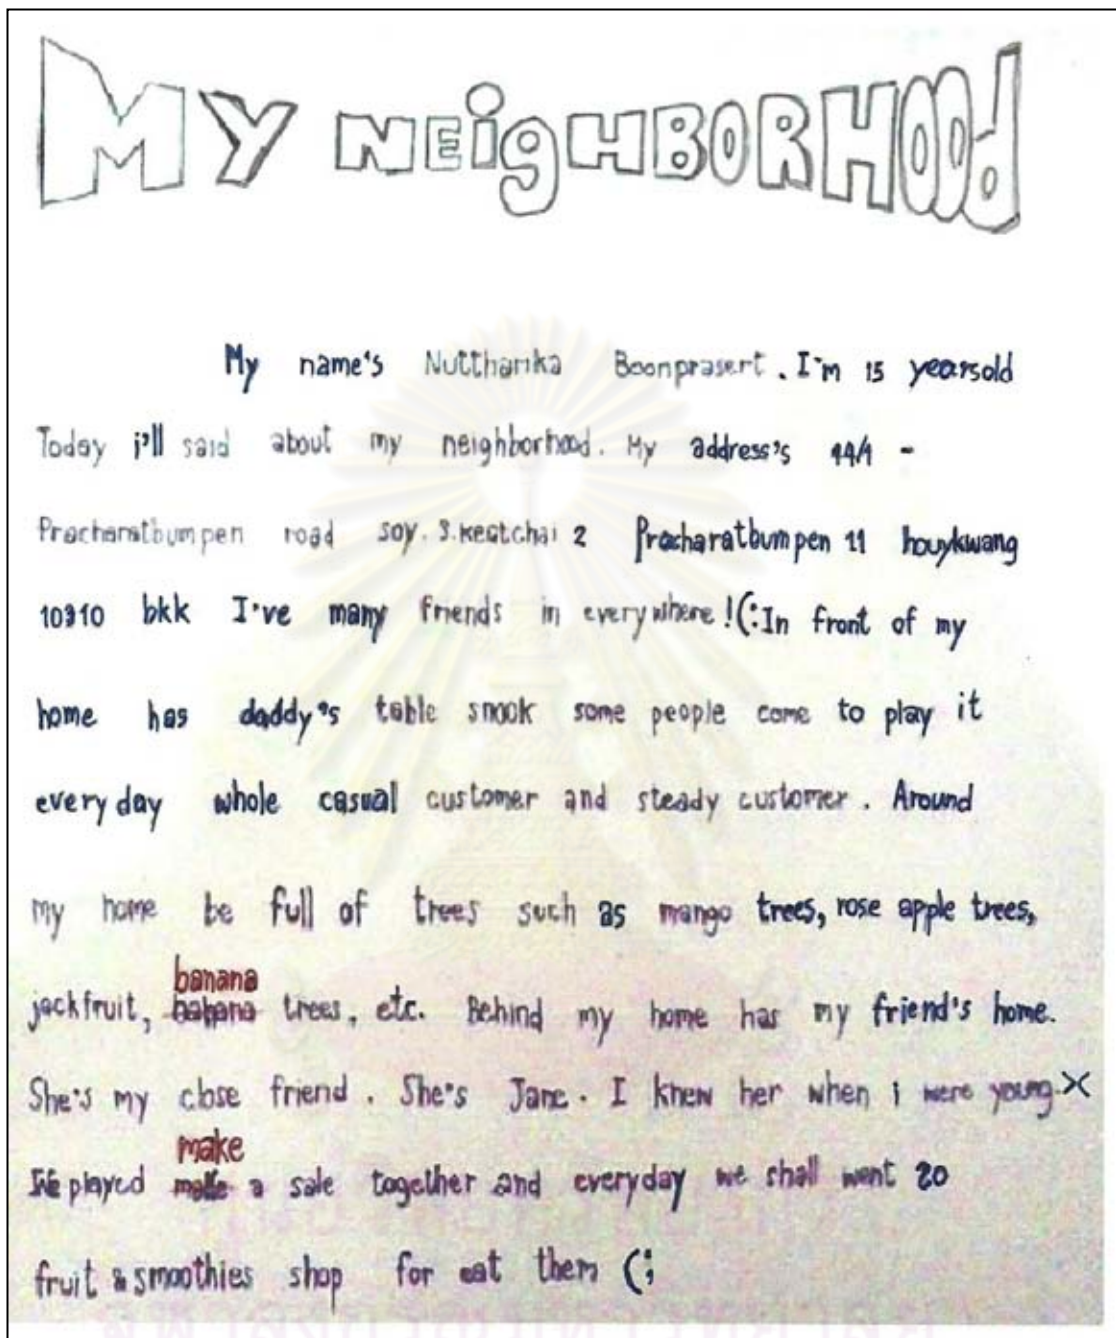 MY NEiGHBORHOOd
My name's Nuttharika Boonprasert. I'm 15 yearsold
Today i'll said about my neighborhood. My address's 44/1 -
Pracharatbumpen road soy. 3.Keatchai 2 Pracharatbumpen 11 houykwang
10310 bkk I've many friends in everywhere !(:In front of my
home has daddy's table snook some people come to play it
everyday whole casual customer and steady customer. Around
my home be full of trees such as mango trees, rose apple trees,
banana
jackfruit, trees, etc. Behind my home has my friend's home.
She's my close friend. She's Jane. I knew her when i were young.X
make
We played a sale together and everyday we shall went 20
fruit & smoothies shop for eat them (;